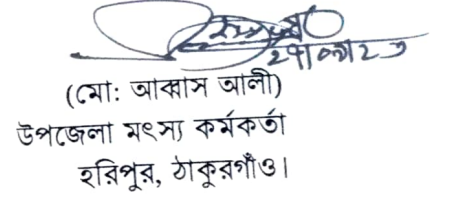 (মো: আব্বাস আলী)
উপজেলা মৎস্য কর্মকর্তা
হরিপুর, ঠাকুরগাঁও।